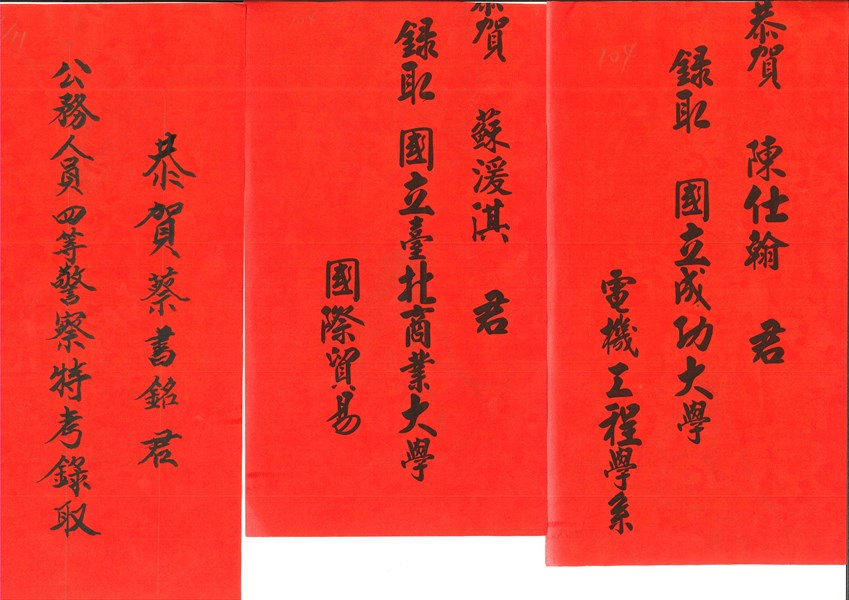 恭賀 陳仕翰 君
錄取 國立成功大學
電機工程學系
104
恭賀 蘇湲淇 君
錄取 國立臺北商業大學
國際貿易
恭賀蔡書銘君
公務人員四等警察特考錄取